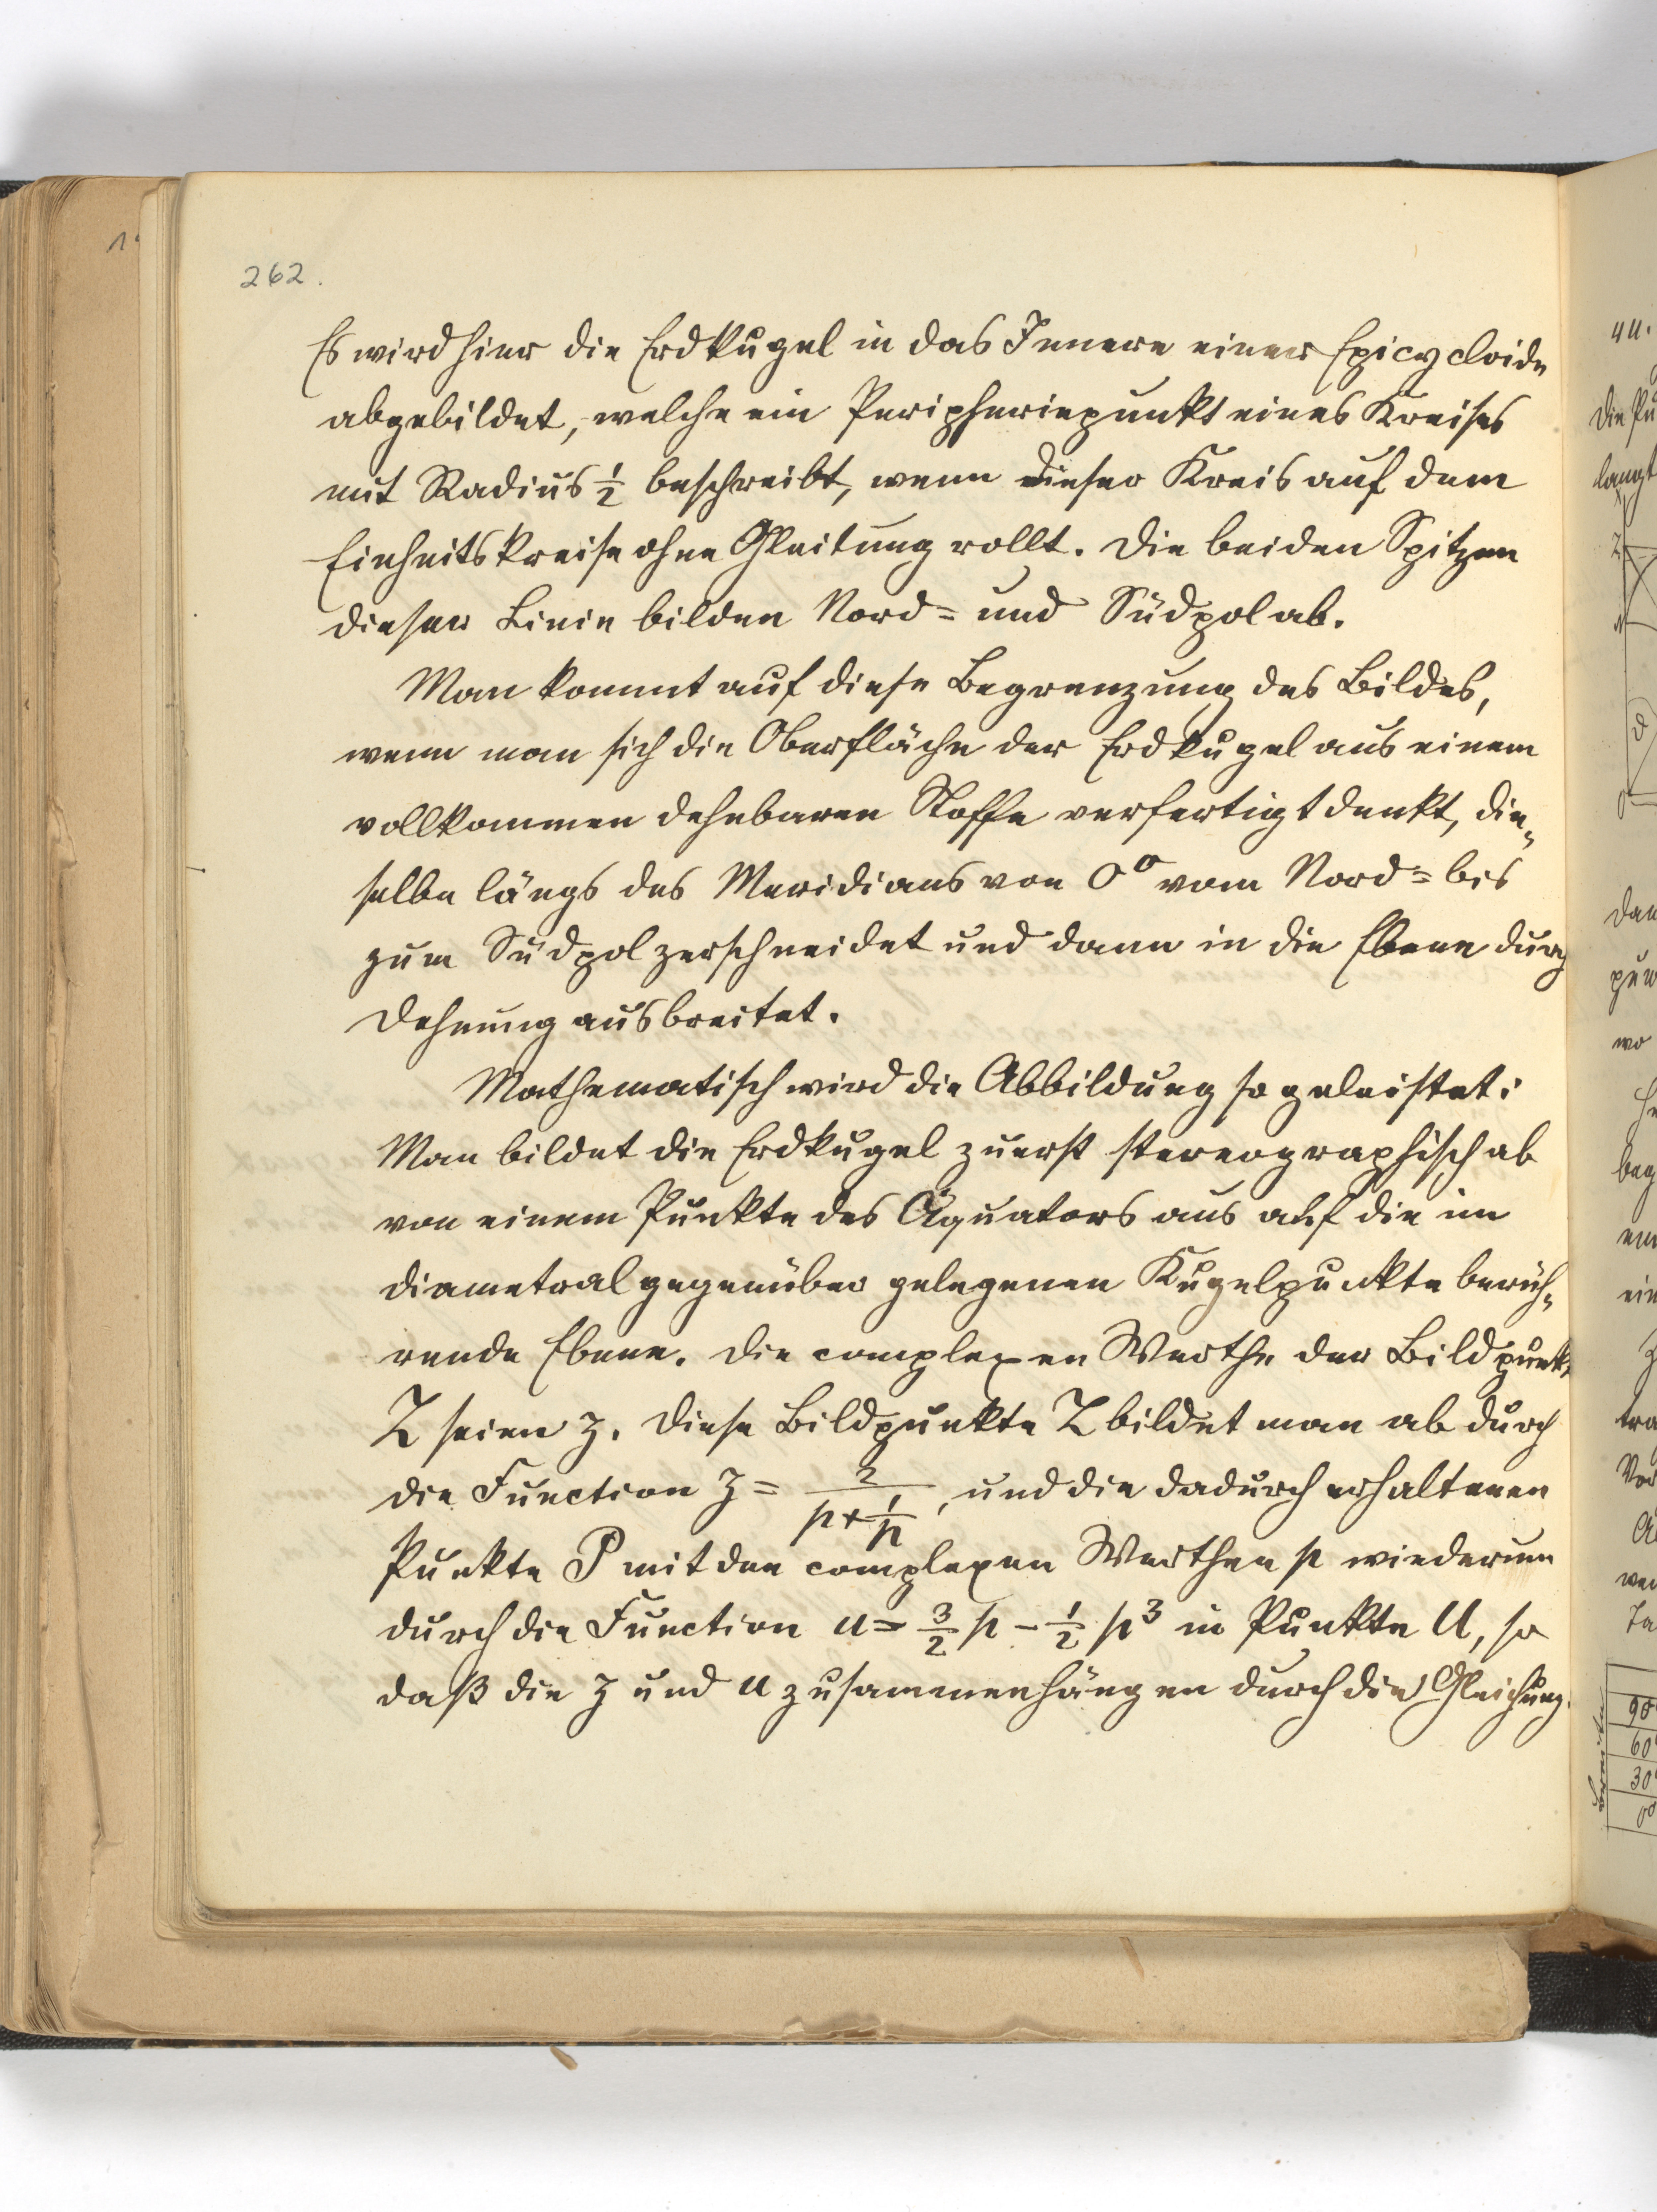 262.
Es wird hier die Erdkugel in das Innere einer Epicycloide
abgebildet, welche ein Peripheriepunkt eines Kreises
mit Radius 1/2 beschreibt, wenn dieser Kreis auf dem
Einheitskreise ohne Gleitung rollt. Die beiden Spitzen
dieser Linie bilden Nord= und Südpol ab.
Man kommt auf diese Begrenzung des Bildes,
wenn man sich die Oberfläche der Erdkugel aus einem
vollkommen dehnbaren Stoffe verfertigt denkt, die=
selbe längs des Meridians von 0° vom Nord= bis
zum Südpol zerschneidet und dann in die Ebene durch
Dehnung ausbreitet.
Mathematisch wird die Abbildung so geleistet:
Man bildet die Erdkugel zuerst stereographisch ab
von einem Punkte des Äquators aus auf die im
diametral gegenüber gelegenen Kugelpunkte berüh=
rende Ebene. Die complexen Werthe der Bildpunkte
Z seien z. Diese Bildpunkte Z bildet man ab durch
die Function z = 2/(p+1/p), und die dadurch erhaltenen
Punkte P mit den complexen Werthen p wiederum
durch die Function u = 3/2 p - 1/2 p³ in Punkte U, so
daß die z und u zusammenhängen durch die Gleichung.
an.
die Pu
langt
Z
d
dan
wo
beg
ein
z
tra
Vor
90°
60°
30°
0°